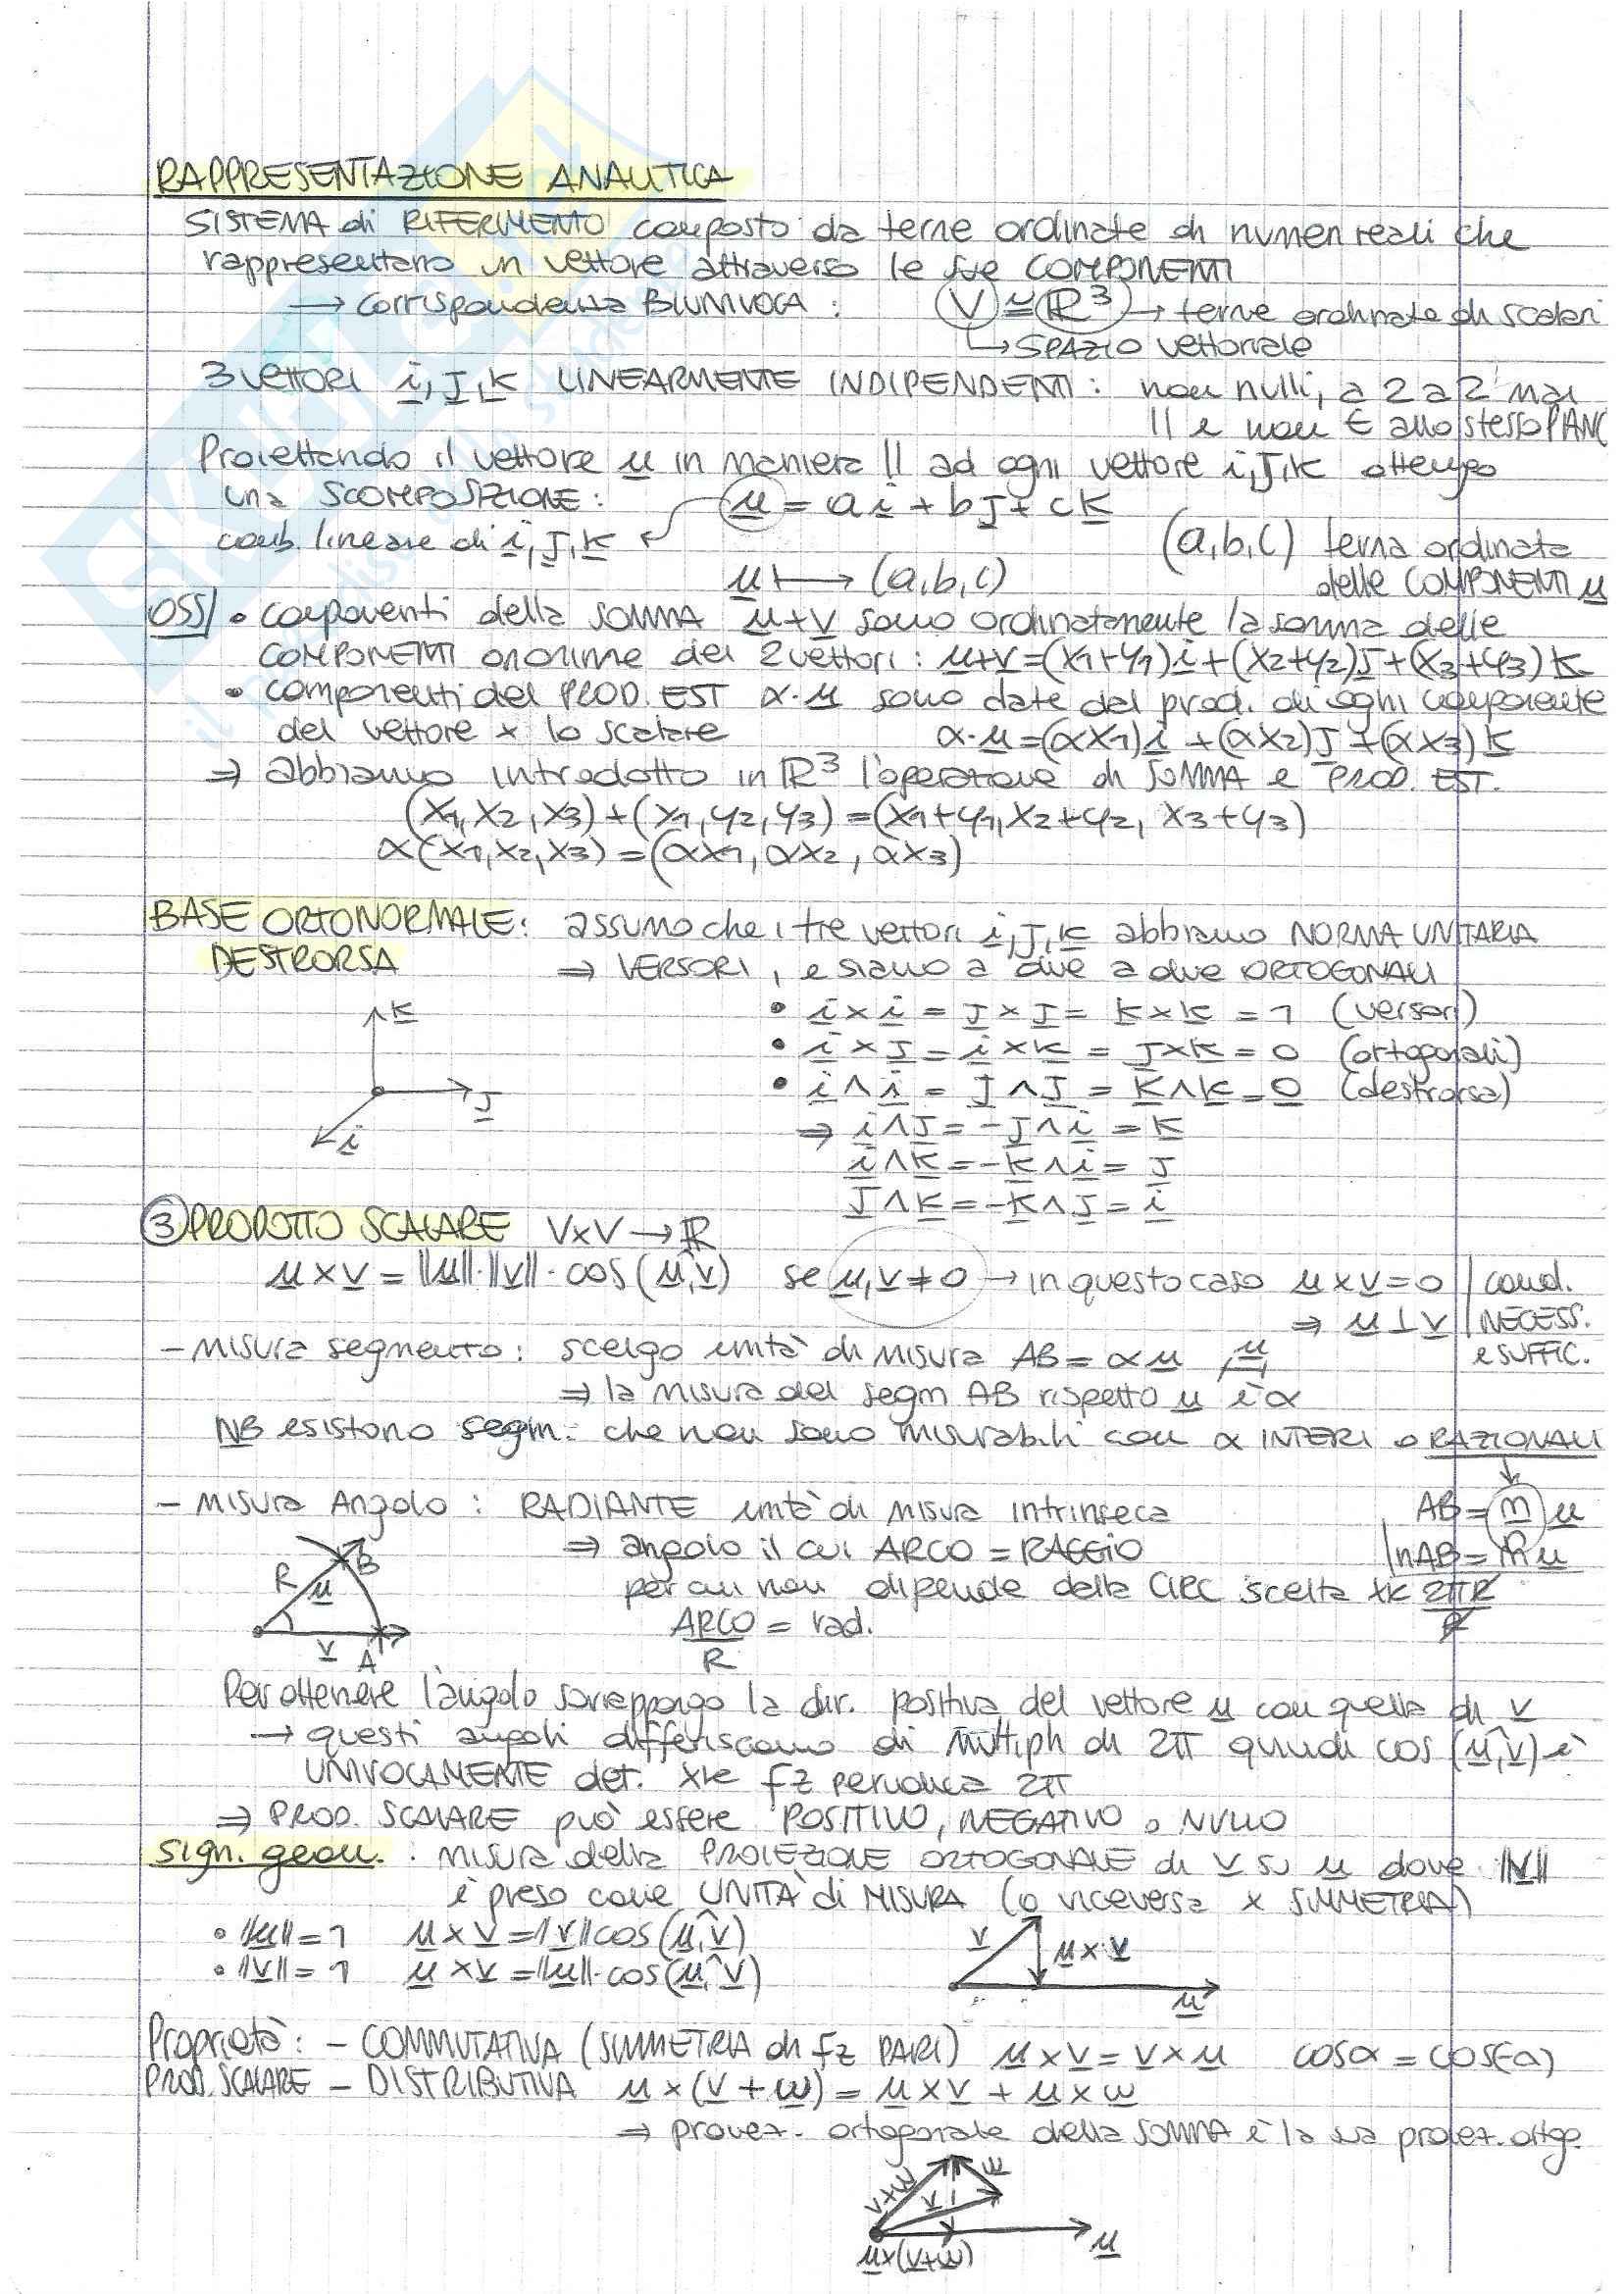 RAPPRESENTAZIONE ANALITICA
SISTEMA di RIFERIMENTO composto da terne ordinate di numeri reali che
rappresentano un vettore attraverso le sue COMPONENTI
→ corrispondenza BIUNIVOCA : V ≃ ℝ³ → terne ordinate di scalari
↳ SPAZIO vettoriale
3 vettori i, J, K LINEARMENTE INDIPENDENTI: non nulli, a 2 a 2 mai
// e non ∈ allo stesso PIANO
Proiettando il vettore u in maniera // ad ogni vettore i, J, K ottengo
una SCOMPOSIZIONE: u = a i + b J + c K
comb. lineare di i, J, K (a,b,c) terna ordinata
u ↦ (a,b,c) delle COMPONENTI u
OSS/ • componenti della SOMMA u+v sono ordinatamente la somma delle
COMPONENTI omonime dei 2 vettori: u+v=(x1+y1)i+(x2+y2)J+(x3+y3)K
• componenti del PROD. EST α·u sono date dal prod. di ogni componente
del vettore x lo scalare α·u=(αx1)i+(αx2)J+(αx3)K
⇒ abbiamo introdotto in ℝ³ l'operazione di SOMMA e PROD. EST.
(x1,x2,x3)+(y1,y2,y3)=(x1+y1,x2+y2,x3+y3)
α(x1,x2,x3)=(αx1,αx2,αx3)
BASE ORTONORMALE: assumo che i tre vettori i, J, K abbiano NORMA UNITARIA
DESTRORSA ⇒ VERSORI, e siano a due a due ORTOGONALI
K
J
i
• i×i = J×J = K×K = 1 (versori)
• i×J = i×K = J×K = 0 (ortogonali)
• i∧i = J∧J = K∧K = 0 (destrorsa)
⇒ i∧J=-J∧i=K
i∧K=-K∧i=J
J∧K=-K∧J=i
③ PRODOTTO SCALARE V×V → ℝ
u×v=‖u‖·‖v‖·cos(u,^v) se u,v≠0 → in questo caso u×v=0 | cond.
⇒ u⊥v | NECESS.
e SUFFIC.
- Misura segmento: scelgo unità di misura AB=αu u
⇒ la misura del segm AB rispetto u è α
NB esistono segm. che non sono misurabili con α INTERI o RAZIONALI
↓
- Misura Angolo: RADIANTE unità di misura intrinseca AB=m u
⇒ angolo il cui ARCO=RAGGIO nAB=m u
R u B
v A
per cui non dipende dalla CIRC scelta xk 2πR/R
ARCO/R = rad.
Per ottenere l'angolo sovrappongo la dir. positiva del vettore u con quella di v
→ questi angoli differiscono di multipli di 2π quindi cos(u,^v) è
UNIVOCAMENTE det. xk fz periodica 2π
⇒ PROD. SCALARE può essere POSITIVO, NEGATIVO o NULLO
Sign. geom. : misura della PROIEZIONE ORTOGONALE di v su u dove ‖v‖
è preso come UNITÀ di MISURA (o viceversa x SIMMETRIA)
• ‖u‖=1 u×v=‖v‖cos(u,^v)
• ‖v‖=1 u×v=‖u‖·cos(u,^v)
v u×v
u
Proprietà: - COMMUTATIVA (SIMMETRIA di fz PARI) u×v=v×u cosα=cos(-α)
PROD. SCALARE - DISTRIBUTIVA u×(v+w)=u×v+u×w
⇒ proiez. ortogonale della SOMMA è la sua proiez. ortog.
v+w v w
u
u×(v+w)